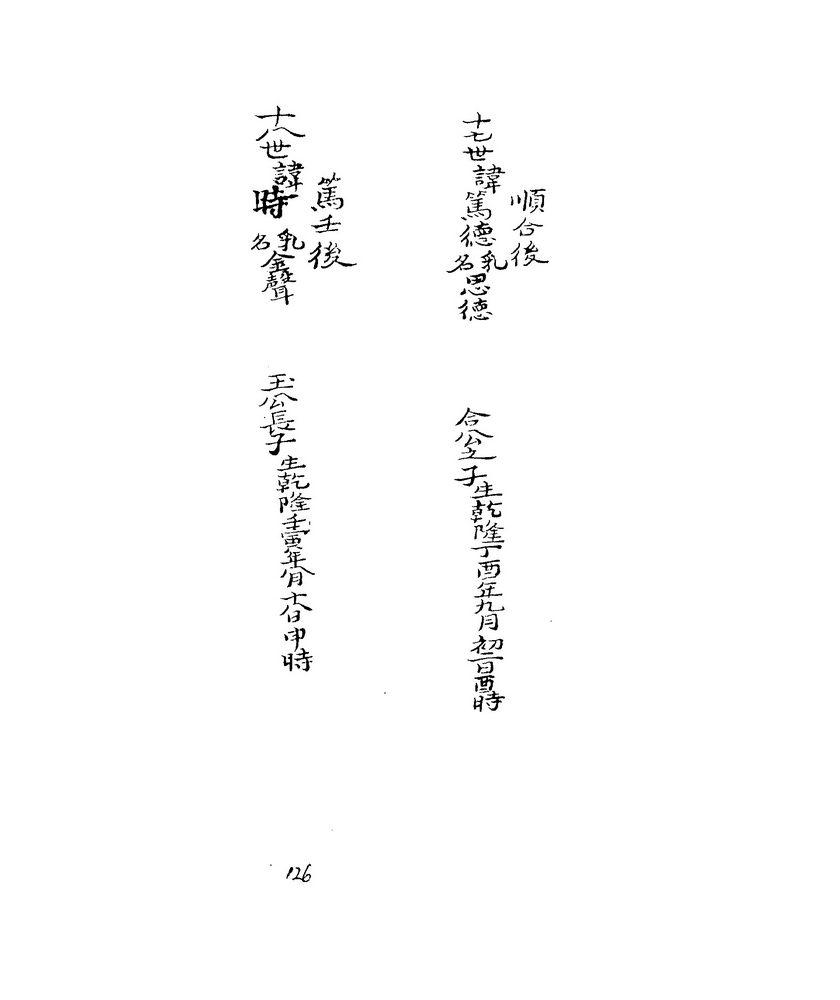 順合後
十七世諱篤德乳名思德
合公之子生乾隆丁酉年九月初一日酉時
篤壬後
十八世諱時乳名金聲
玉公長子生乾隆壬寅年八月十八日申時
126